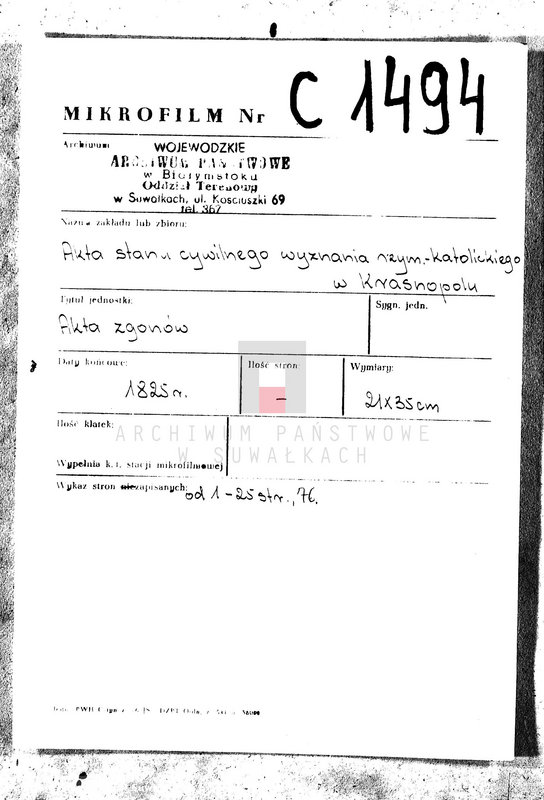 MIKROFILM Nr C 1494
Archiwum
WOJEWÓDZKIE
ARCHIWUM PAŃSTWOWE
w Białymstoku
Oddział Terenowy
w Suwałkach, ul. Kościuszki 69
tel. 367
Nazwa zakładu lub zbioru:
Akta stanu cywilnego wyznania rzym.-katolickiego
w Krasnopolu
Tytuł jednostki:
Sygn. jedn.
Akta zgonów
Daty końcowe:
Ilość stron:
Wymiary:
1825 r.
–
21x35cm
Ilość klatek:
ARCHIWUM PAŃSTWOWE
W SUWAŁKACH
Wypełnia k.t. stacji mikrofilmowej
Wykaz stron niezapisanych:
od 1-25 str., 76.